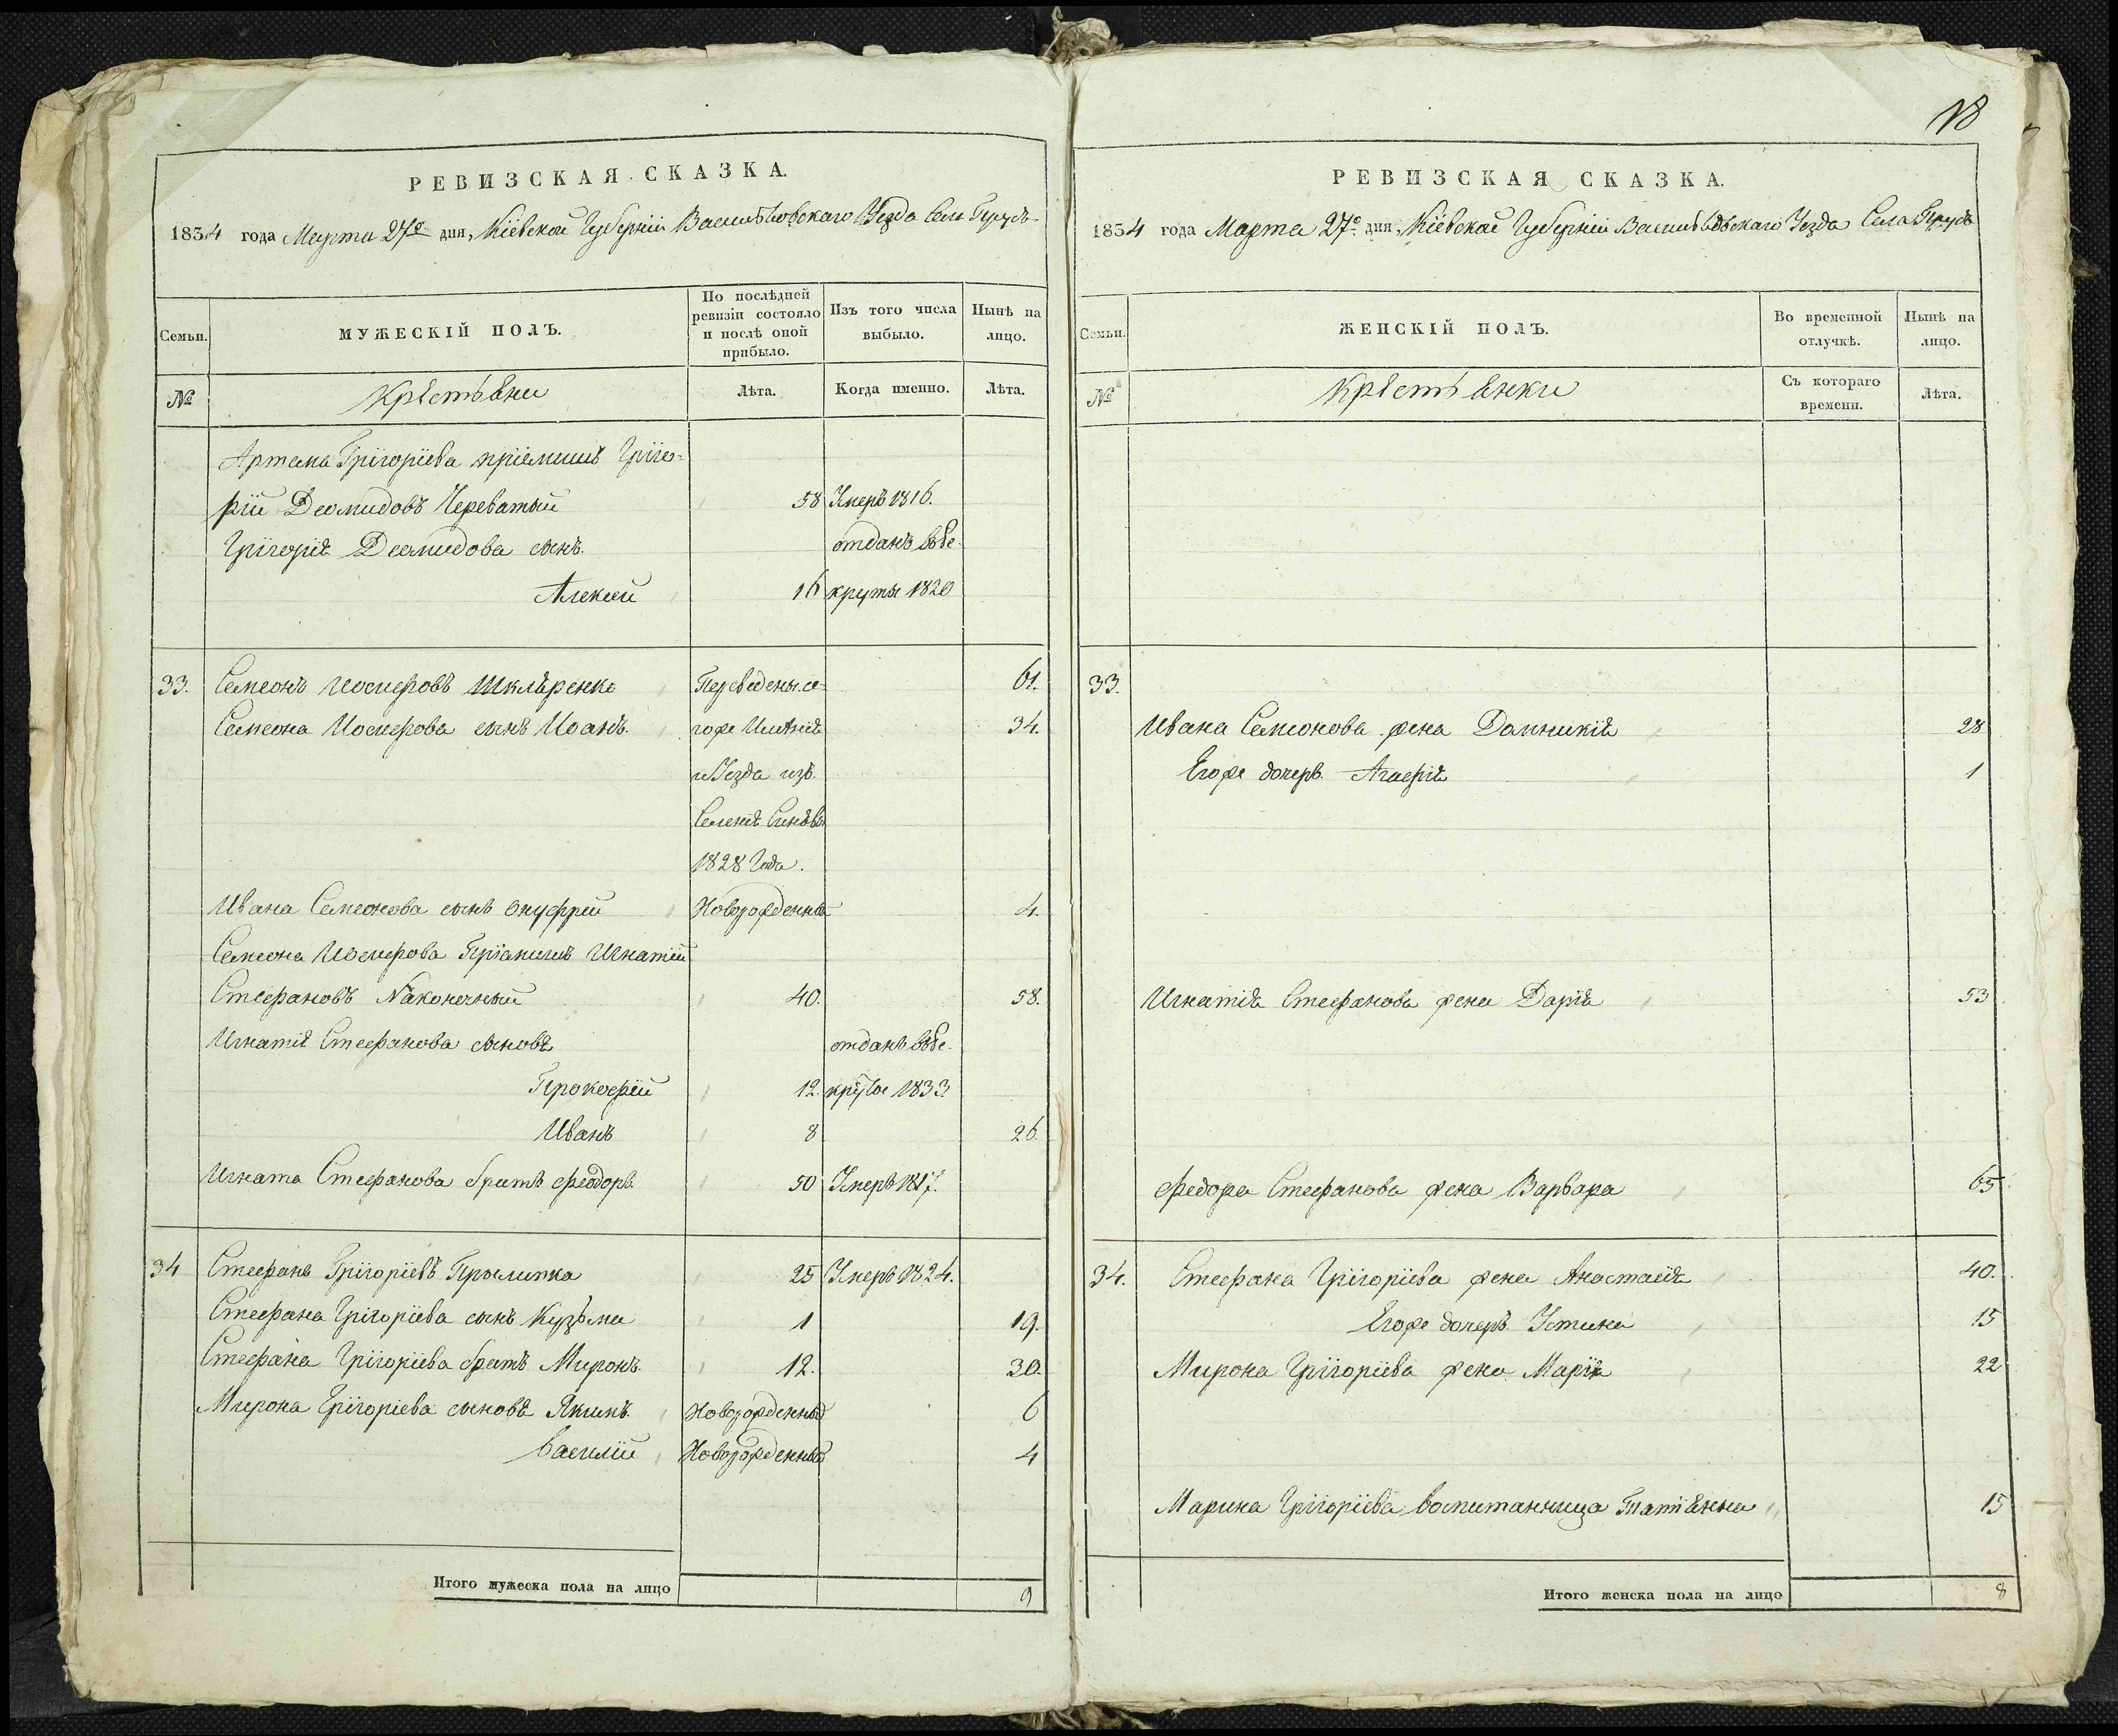 РЕВИЗСКАЯ СКАЗКА.
1834 года Марта 27го дня, Кіевской Губерніи Васильковскаго Уезда Села
Семьи.
МУЖЕСКІЙ ПОЛЪ.
По послѣдней ревизіи состояло и послѣ оной прибыло.
Изъ того числа выбыло.
Нынѣ на лицо.
№
Крестьяни
Лѣта.
Когда именно.
Лѣта.
Артема Григоріева пріемишъ Григо=
рій Деомидовъ Череватый 58 Умеръ 1816.
Григорія Деомидова сынъ. отданъ врѣ
Алексей 16 круты 1820
33. Семеонъ Иосифовъ Шкляренко Переведены се= 61.
Семеона Иосифова сынъ Иоанъ. гоже Имѣнія 34.
и Уезда изъ
Селенія
1828 Года.
Ивана Семеонова сынъ Онуфрей Новорожденный 4.
Семеона Иосифова Пріемишъ Игнатій
Стефановъ Наконечный 40. 58.
Игнатія Стефанова сыновя отданъ врѣ
Прокофій 12. круты 1833
Иванъ 8 26.
Игната Стефанова братъ Феодоръ 50 Умеръ 1817.
34 Стефанъ Григоріевъ Прылипка 25 Умеръ 1824.
Стефана Григоріева сынъ Кузьма 1 19.
Стефана Григоріева братъ Миронъ 12. 30.
Мирона Григоріева сыновя Якимъ Новорожденный 6
Василій Новорожденный 4
Итого мужеска пола на лицо 9
18
РЕВИЗСКАЯ СКАЗКА.
1834 года Марта 27го дня, Кіевской Губерніи Васильковскаго Уезда Села
Семьи.
ЖЕНСКІЙ ПОЛЪ.
Во временной отлучкѣ.
Нынѣ на лицо.
№
Крестьянки
Съ котораго времени.
Лѣта.
33.
Ивана Семеонова жена Домникія 28
Егоже дочеръ Агафія 1
Игнатія Стефанова жена Дарія 53
Федора Стефанова жена Варвара 65
34. Стефана Григоріева жена Анастасія 40.
Егоже дочеръ Устина 15
Мирона Григоріева жена Марія 22
Марина Григоріева воспитанница Татіянна 15
Итого женска пола на лицо 8